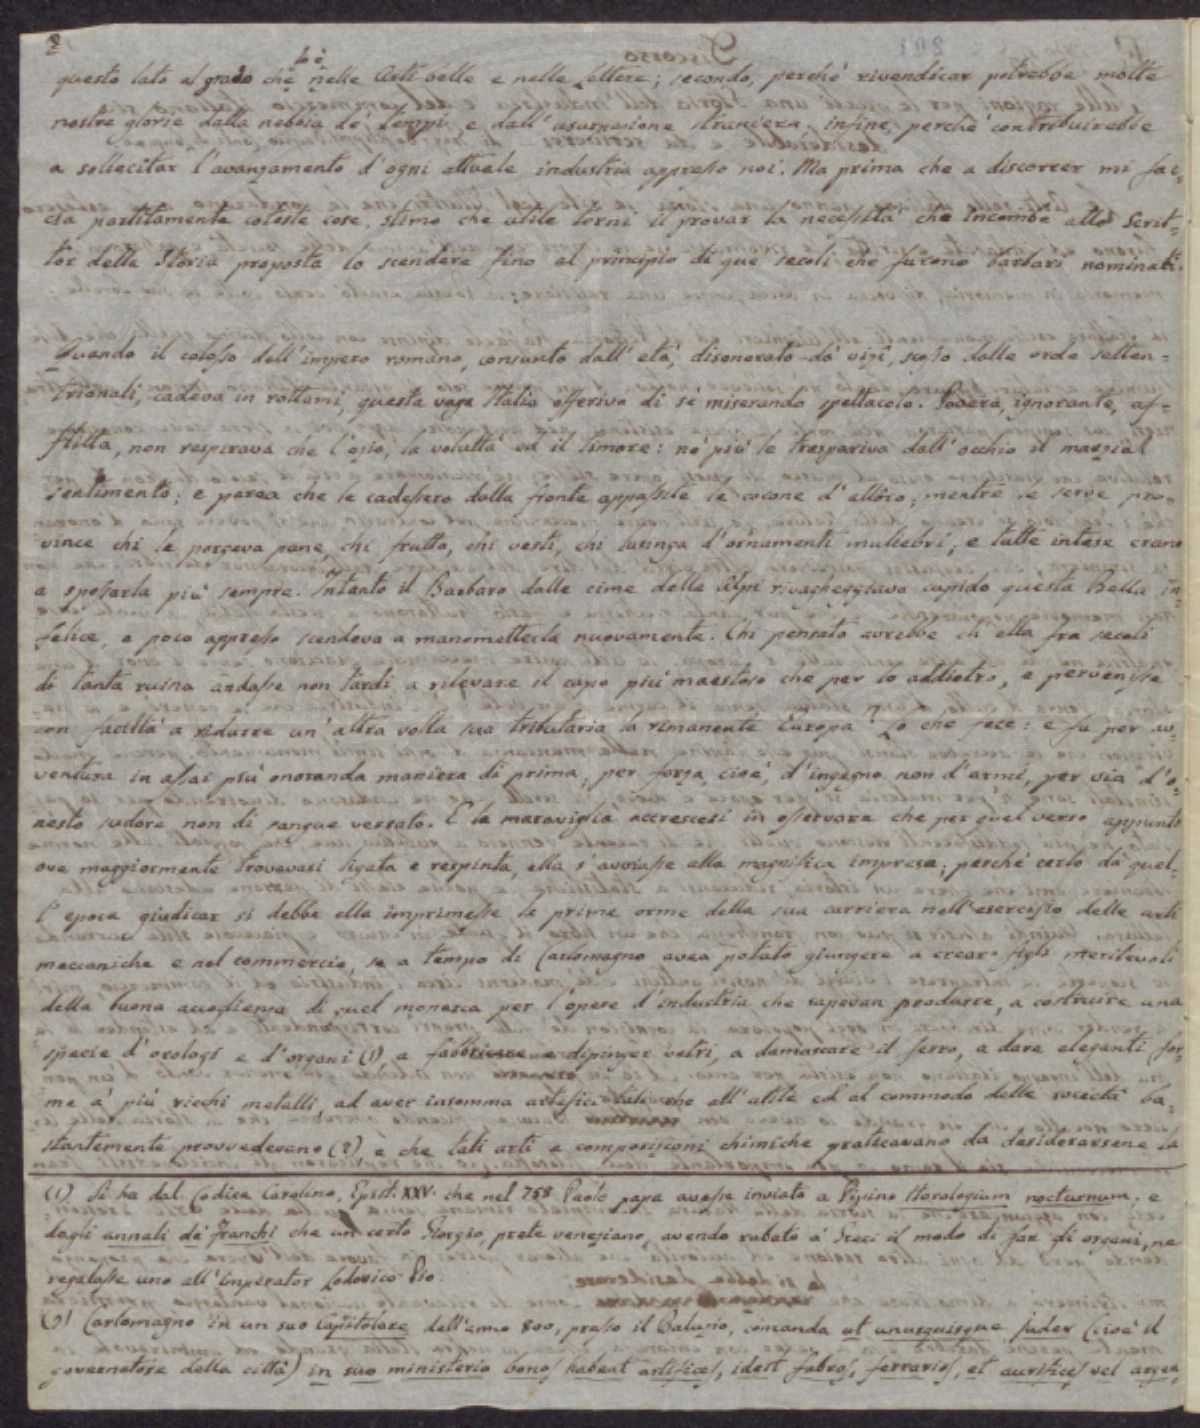 2
lo è
questo lato al grado che nelle Arti belle e nelle Lettere; secondo, perché rivendicar potrebbe molte
nostre glorie dalla nebbia de' tempi e dall'usurpazione straniera; infine, perchè contribuirebbe
a sollecitar l'avanzamento d'ogni attuale industria appresso noi. Ma prima che a discorrer mi fac-
cia partitamente coteste cose, stimo che utile torni il provar la necessità che incombe allo Scrit-
tor della Storia proposta lo scendere fino al principio di que' secoli che furono barbari nominati.
Quando il colosso dell'impero romano, consunto dall'età, disonorato da' vizi, scosso dalle orde setten-
trionali, cadeva in rottami, questa vaga Italia offeriva di sè miserando spettacolo. Povera, ignorante, af-
flitta, non respirava che l'ozio, la voluttà ed il timore: nè più le traspariva dall'occhio il marzial
sentimento; e parea che le cadessero dalla fronte appassite le corone d'alloro; mentre le serve pro-
vince chi le porgeva pane, chi frutta, chi vesti, chi lusinga d'ornamenti muliebri, e tutte intese erano
a spossarla più sempre. Intanto il Barbaro dalle cime delle Alpi rivagheggiava cupido questa Bella in-
felice, e poco appresso scendeva a manometterla nuovamente. Chi pensato avrebbe ch'ella fra secoli
di tanta ruina andasse non tardi a rilevare il capo più maestoso che per lo addietro, e pervenisse
con facilità a ridurre un'altra volta sua tributaria la rimanente Europa? Lo che fece: e fu per av-
ventura in assai più onoranda maniera di prima; per forza, cioè, d'ingegno non d'armi, per via d'o-
nesto sudore non di sangue versato. E la maraviglia accrescesi in osservare che per quel verso appunto
ove maggiormente trovavasi ligata e respinta, ella s'avviasse alla magnifica impresa; perchè certo da quel-
l'epoca giudicar si debbe ella imprimesse le prime orme della sua carriera nell'esercizio delle arti
meccaniche e nel commercio, se a tempo di Carlomagno avea potuto giungere a crear figli meritevoli
della buona accoglienza di quel monarca per l'opere d'industria che sapevan produrre, a costruire una
specie d'orologi e d'organi (1), a fabbricare e dipinger vetri, a damascare il ferro, a dare eleganti for-
me a' più ricchi metalli, ad aver insomma artefici tali che all'utile ed al commodo della società ba-
stantemente provvedevano (2), e che tali arti e composizioni chimiche praticavano da desiderarsene la
(1) Si ha dal Codice Carolino, Epist. XXV. che nel 758 Paolo papa avesse inviato a Pipino Horologium nocturnum; e
dagli annali de' Franchi che un certo Giorgio, prete veneziano, avendo rubato a' Greci il modo di far gli organi, ne
regalasse uno all'Imperator Lodovico Pio.
(2) Carlomagno in un suo Capitolare dell'anno 800, presso il Baluzio, comanda ut unusquisque judex (cioè il
governatore della città) in suo ministerio bonos habeat artifices, idest fabros, ferrarios, et aurifices vel argen